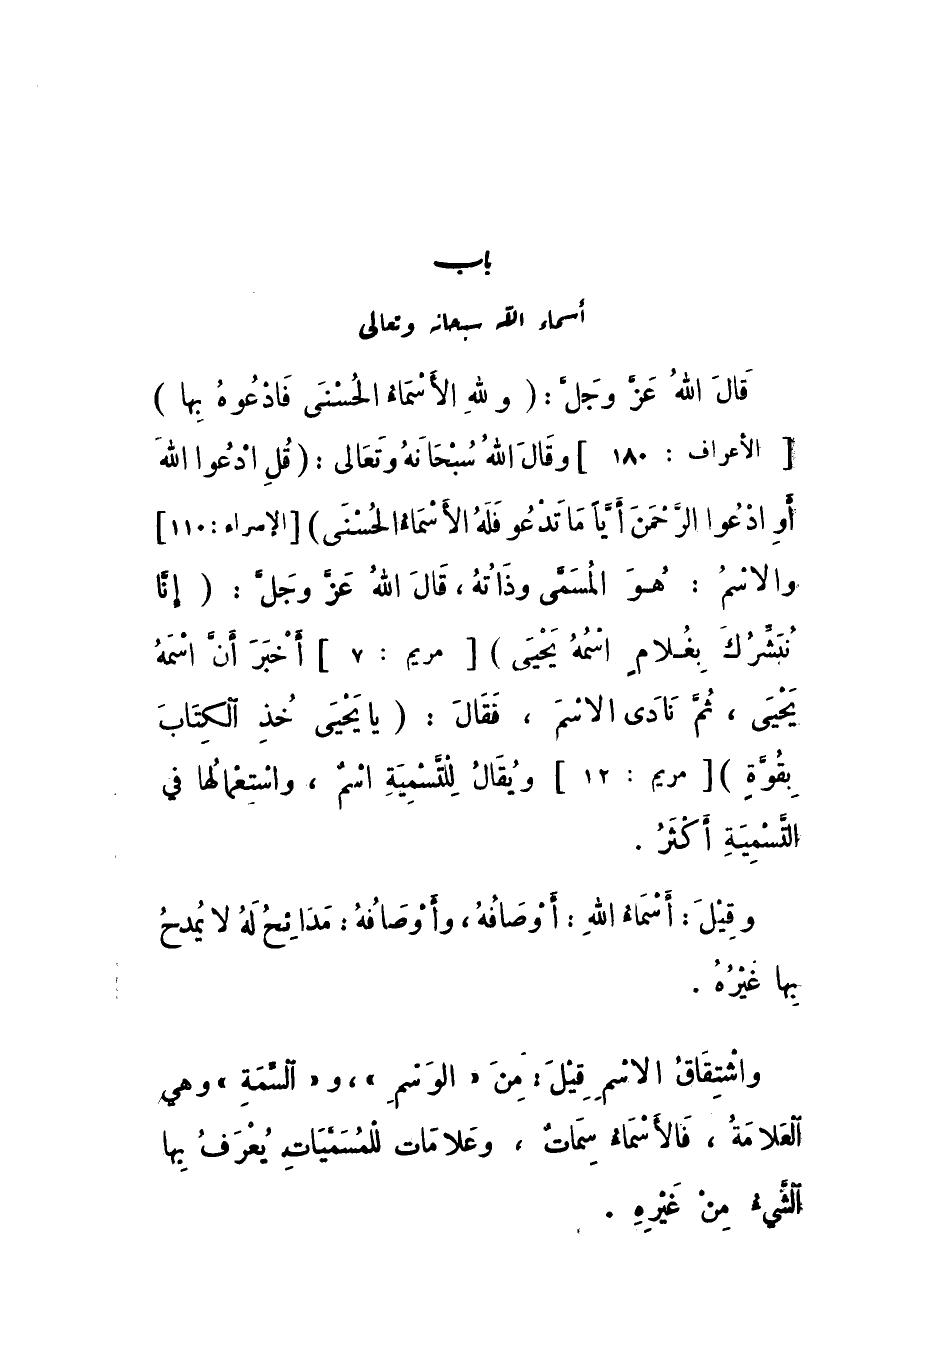 باب
أسماء الله سبحانه وتعالى
قَالَ اللهُ عَزَّ وجَلَّ : ( و للهِ الأَسْمَاءُ الحُسْنَى فَادْعُوهُ بِها )
[ الأعراف : ١٨٠ ] وقَالَ اللهُ سُبْحَانَهُ وتَعَالى : ( قُلِ ادْعُوا اللهَ
أَوِ ادْعُوا الرَّحْمَنَ أَيَّاً مَا تَدْعُو فَلَهُ الأَسْمَاءُ الحُسْنَى ) [ الإسراء : ١١٠ ]
والاسْمُ : هُـوَ المُسَمَّى وذَاتُهُ ، قَالَ اللهُ عَزَّ وجَلَّ : ( إِنَّا
نُبَشِّرُكَ بِغُـلامٍ اسْمُهُ يَحْيَى ) [ مريم : ٧ ] أَخْبَرَ أَنَّ اسْمَهُ
يَحْيَى ، ثُمَّ نَادَى الاسْمَ ، فَقَالَ : ( يا يَحْيَى خُذِ ٱلكِتَابَ
بِقُوَّةٍ ) [ مريم : ١٢ ] ويُقَالُ لِلْتَّسْمِيَةِ اسْمٌ ، واسْتِعْمالُها في
التَّسْمِيَةِ أَكْثَرُ .
وقِيْلَ : أَسْمَاءُ اللهِ : أَوْصَافُهُ ، وأَوْصَافُهُ : مَدَائِحُ لَهُ لا يُمدحُ
بِها غَيْرُهُ .
واشْتِقَاقُ الاسْمِ قِيْلَ : مِنَ « الوَسْمِ » ، و « ٱلسِّمَةِ » وهي
ٱلعَلامَةُ ، فَالأَسْمَاءُ سِمَاتٌ ، وعَلامَات لْلمُسَمَّيَاتِ يُعْرَفُ بِها
ٱلشَّيْءُ مِنْ غَيْرِهِ .